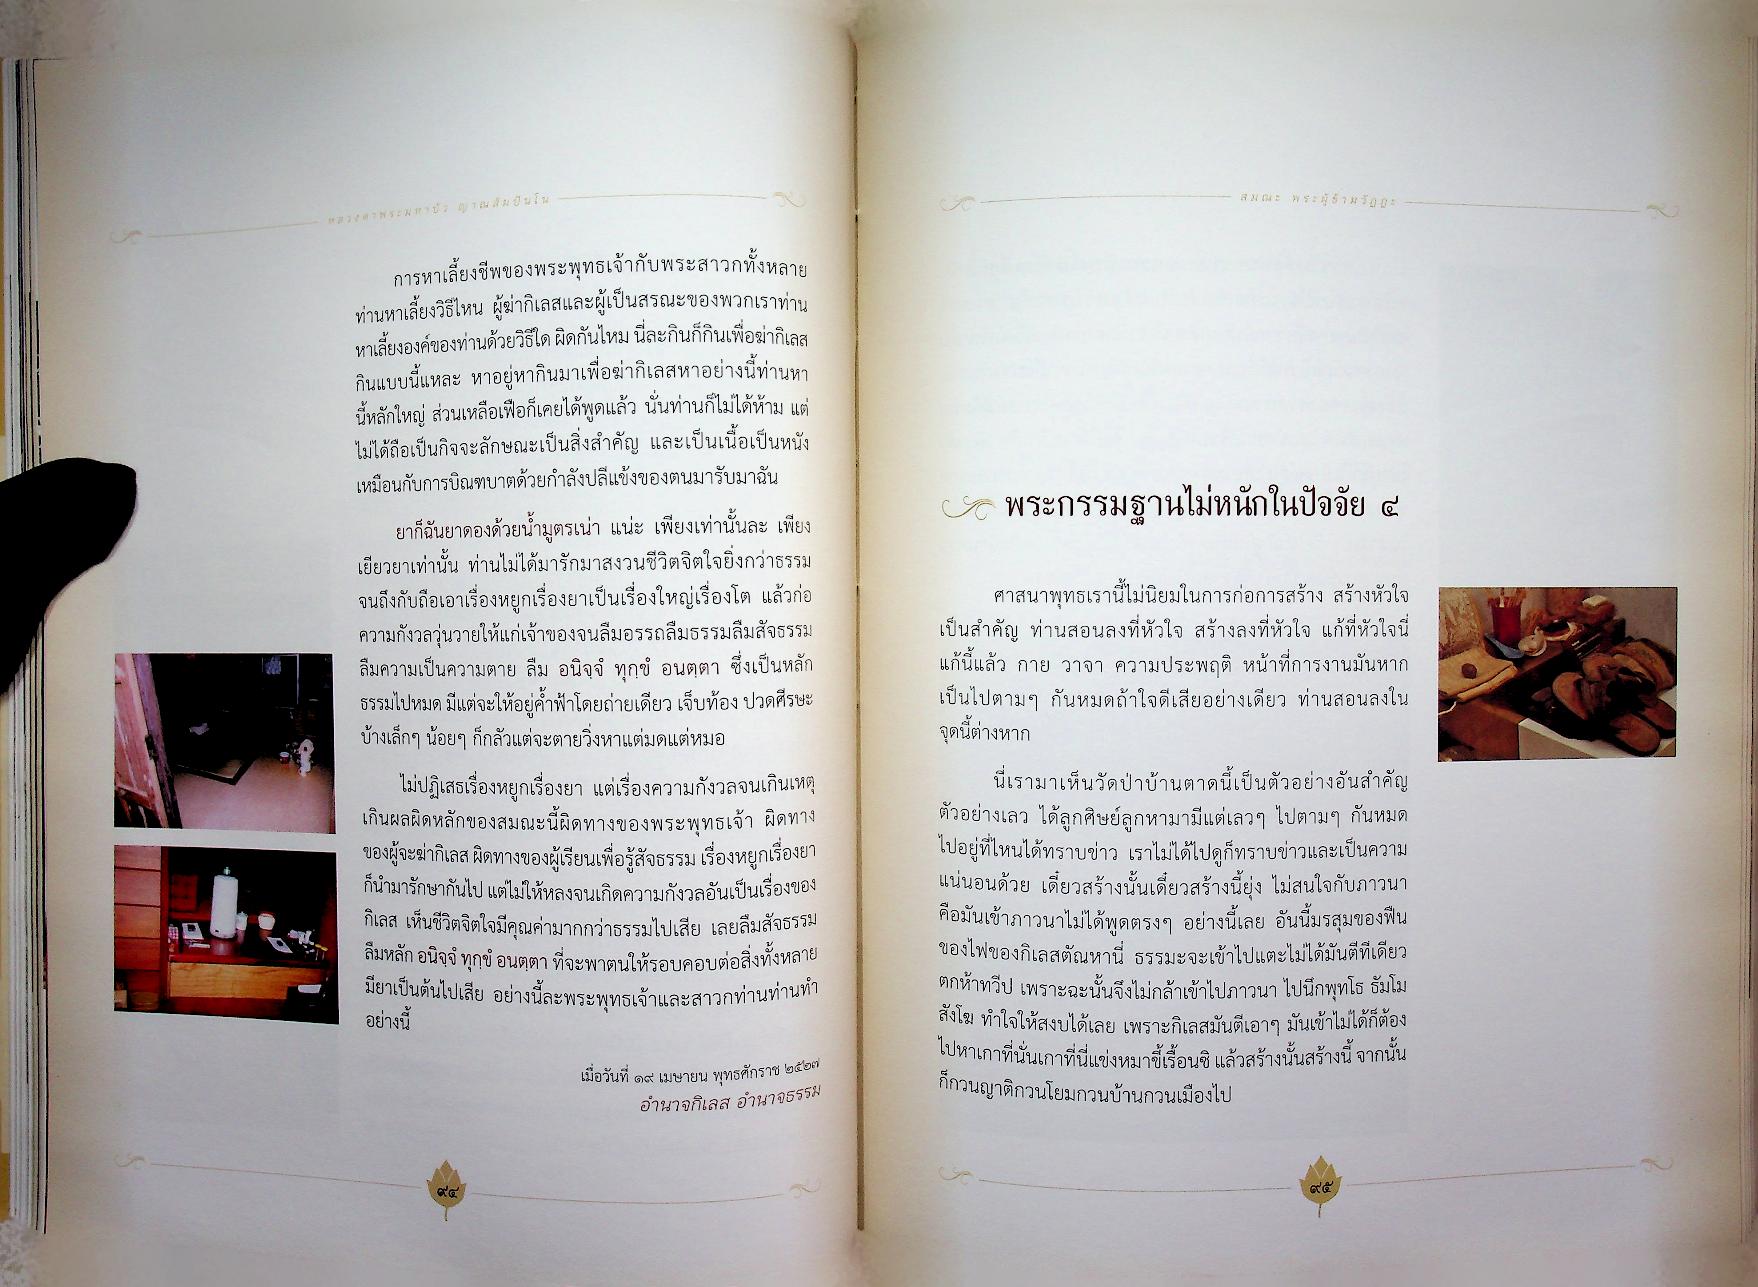 หลวงตาพระมหาบัว ญาณสัมปันโน
การหาเลี้ยงชีพของพระพุทธเจ้ากับพระสาวกทั้งหลาย
ท่านหาเลี้ยงวิธีไหน ผู้ฆ่ากิเลสและผู้เป็นสรณะของพวกเราท่าน
หาเลี้ยงองค์ของท่านด้วยวิธีใด ผิดกันไหม นี่ละกินก็กินเพื่อฆ่ากิเลส
กินแบบนี้แหละ หาอยู่หากินมาเพื่อฆ่ากิเลสหาอย่างนี้ท่านหา
นี้หลักใหญ่ ส่วนเหลือเฟือก็เคยได้พูดแล้ว นั่นท่านก็ไม่ได้ห้าม แต่
ไม่ได้ถือเป็นกิจจะลักษณะเป็นสิ่งสำคัญ และเป็นเนื้อเป็นหนัง
เหมือนกับการบิณฑบาตด้วยกำลังปลีแข้งของตนมารับมาฉัน
ยาก็ฉันยาดองด้วยน้ำมูตรเน่า แน่ะ เพียงเท่านั้นละ เพียง
เยียวยาเท่านั้น ท่านไม่ได้มารักมาสงวนชีวิตจิตใจยิ่งกว่าธรรม
จนถึงกับถือเอาเรื่องหยูกเรื่องยาเป็นเรื่องใหญ่เรื่องโต แล้วก่อ
ความกังวลวุ่นวายให้แก่เจ้าของจนลืมอรรถลืมธรรมลืมสัจธรรม
ลืมความเป็นความตาย ลืม อนิจฺจํ ทุกฺขํ อนตฺตา ซึ่งเป็นหลัก
ธรรมไปหมด มีแต่จะให้อยู่ค้ำฟ้าโดยถ่ายเดียว เจ็บท้อง ปวดศีรษะ
บ้างเล็กๆ น้อยๆ ก็กลัวแต่จะตายวิ่งหาแต่มดแต่หมอ
ไม่ปฏิเสธเรื่องหยูกเรื่องยา แต่เรื่องความกังวลจนเกินเหตุ
เกินผลผิดหลักของสมณะนี้ผิดทางของพระพุทธเจ้า ผิดทาง
ของผู้จะฆ่ากิเลส ผิดทางของผู้เรียนเพื่อรู้สัจธรรม เรื่องหยูกเรื่องยา
ก็นำมารักษากันไป แต่ไม่ให้หลงจนเกิดความกังวลอันเป็นเรื่องของ
กิเลส เห็นชีวิตจิตใจมีคุณค่ามากกว่าธรรมไปเสีย เลยลืมสัจธรรม
ลืมหลัก อนิจฺจํ ทุกฺขํ อนตฺตา ที่จะพาตนให้รอบคอบต่อสิ่งทั้งหลาย
มียาเป็นต้นไปเสีย อย่างนี้ละพระพุทธเจ้าและสาวกท่านท่านทำ
อย่างนี้
เมื่อวันที่ ๑๙ เมษายน พุทธศักราช ๒๕๒๗
อำนาจกิเลส อำนาจธรรม
๙๔
สมณะ พระผู้ข้ามวัฏฏะ
พระกรรมฐานไม่หนักในปัจจัย ๔
ศาสนาพุทธเรานี้ไม่นิยมในการก่อการสร้าง สร้างหัวใจ
เป็นสำคัญ ท่านสอนลงที่หัวใจ สร้างลงที่หัวใจ แก้ที่หัวใจนี่
แก้นี้แล้ว กาย วาจา ความประพฤติ หน้าที่การงานมันหาก
เป็นไปตามๆ กันหมดถ้าใจดีเสียอย่างเดียว ท่านสอนลงใน
จุดนี้ต่างหาก
นี่เรามาเห็นวัดป่าบ้านตาดนี้เป็นตัวอย่างอันสำคัญ
ตัวอย่างเลว ได้ลูกศิษย์ลูกหามามีแต่เลวๆ ไปตามๆ กันหมด
ไปอยู่ที่ไหนได้ทราบข่าว เราไม่ได้ไปดูก็ทราบข่าวและเป็นความ
แน่นอนด้วย เดี๋ยวสร้างนั้นเดี๋ยวสร้างนี้ยุ่ง ไม่สนใจกับภาวนา
คือมันเข้าภาวนาไม่ได้พูดตรงๆ อย่างนี้เลย อันนี้มรสุมของฟืน
ของไฟของกิเลสตัณหานี่ ธรรมะจะเข้าไปแตะไม่ได้มันตีทีเดียว
ตกห้าทวีป เพราะฉะนั้นจึงไม่กล้าเข้าไปภาวนา ไปนึกพุทโธ ธัมโม
สังโฆ ทำใจให้สงบได้เลย เพราะกิเลสมันตีเอาๆ มันเข้าไม่ได้ก็ต้อง
ไปหาเกาที่นั่นเกาที่นี่แข่งหมาขี้เรื้อนซิ แล้วสร้างนั้นสร้างนี้ จากนั้น
ก็กวนญาติกวนโยมกวนบ้านกวนเมืองไป
๙๕